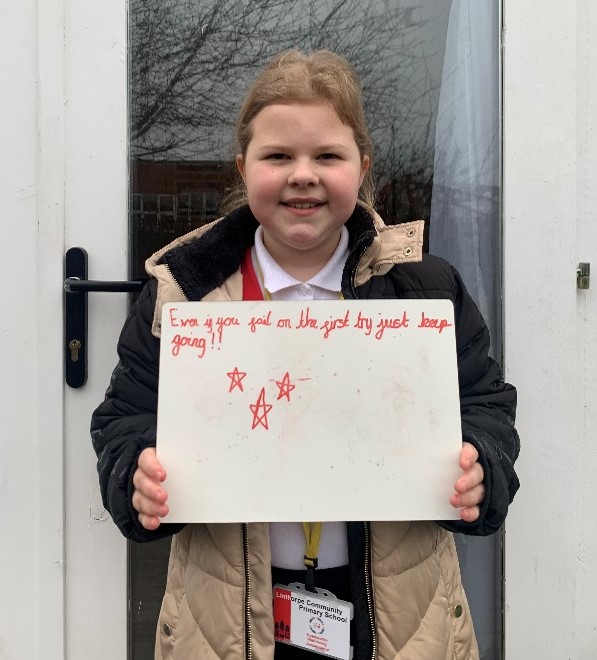 Even if you fail on the first try just keep
going!!
Linthorpe Community
Primary School